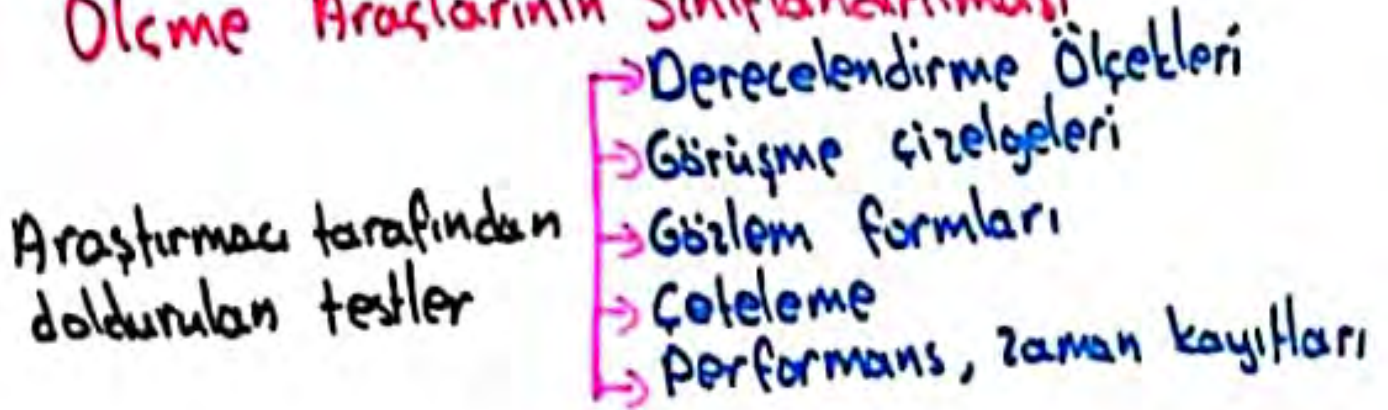 Ölçme Araçlarının Sınıflandırılması
Araştırmacı tarafından
doldurulan testler
Derecelendirme Ölçekleri
Görüşme çizelgeleri
Gözlem formları
Çeteleme
Performans, zaman kayıtları